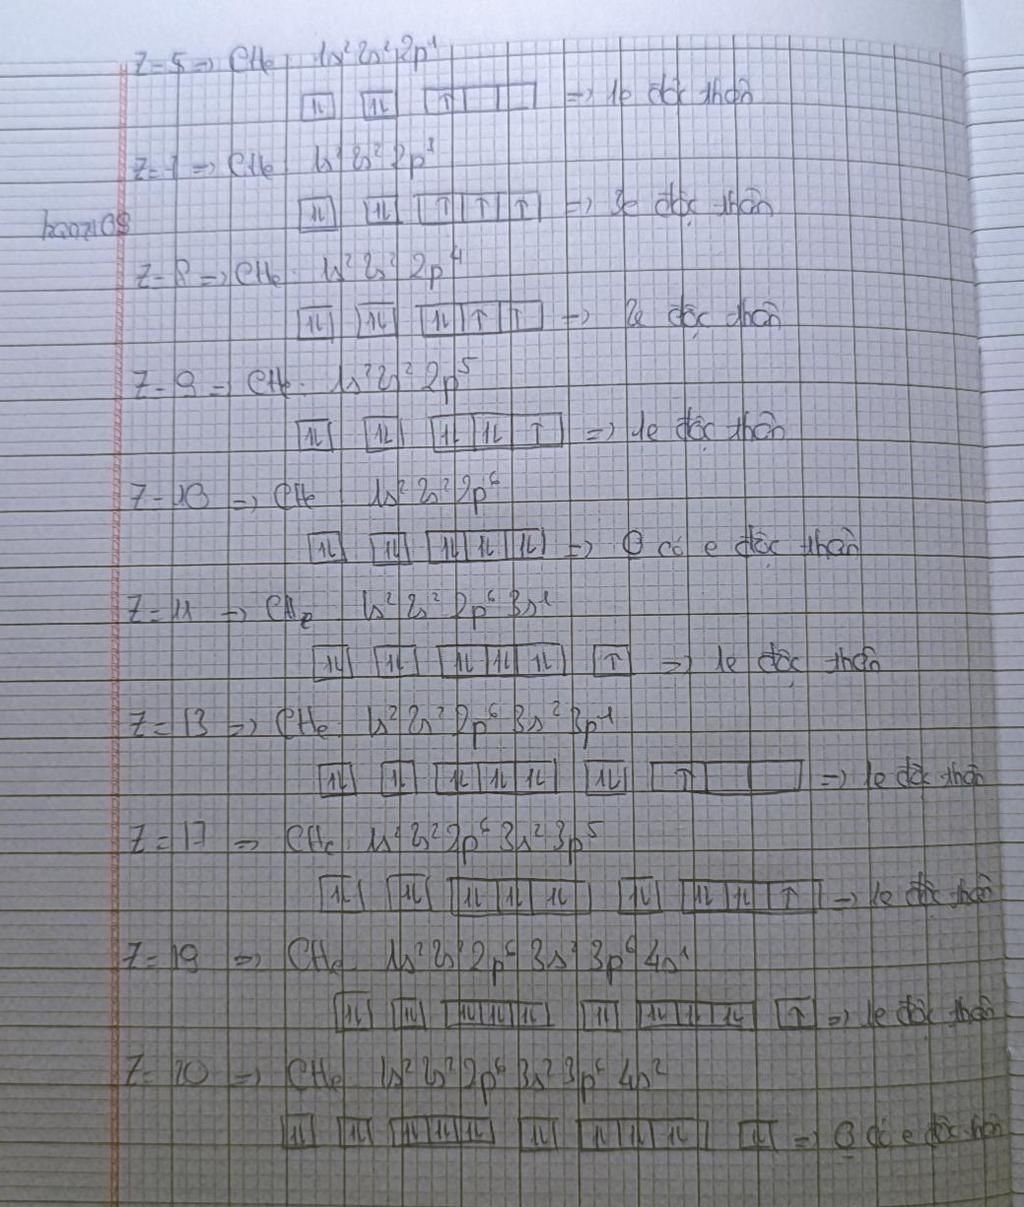 Z=5 => CHe 1s² 2s² 2p¹
↑↓ ↑↓ ↑ => 1e độc thân
Z=7 => CHe 1s² 2s² 2p³
↑↓ ↑↓ ↑ ↑ ↑ => 3e độc thân
Z=8 => CHe 1s² 2s² 2p⁴
↑↓ ↑↓ ↑↓ ↑ ↑ => 2e độc thân
Z=9 => CHe 1s² 2s² 2p⁵
↑↓ ↑↓ ↑↓ ↑↓ ↑ => 1e độc thân
Z=10 => CHe 1s² 2s² 2p⁶
↑↓ ↑↓ ↑↓ ↑↓ ↑↓ => 0 có e độc thân
Z=11 => CHe 1s² 2s² 2p⁶ 3s¹
↑↓ ↑↓ ↑↓ ↑↓ ↑↓ ↑ => 1e độc thân
Z=13 => CHe 1s² 2s² 2p⁶ 3s² 3p¹
↑↓ ↑↓ ↑↓ ↑↓ ↑↓ ↑↓ ↑ => 1e độc thân
Z=17 => CHe 1s² 2s² 2p⁶ 3s² 3p⁵
↑↓ ↑↓ ↑↓ ↑↓ ↑↓ ↑↓ ↑↓ ↑↓ ↑ => 1e độc thân
Z=19 => CHe 1s² 2s² 2p⁶ 3s² 3p⁶ 4s¹
↑↓ ↑↓ ↑↓ ↑↓ ↑↓ ↑↓ ↑↓ ↑↓ ↑↓ ↑ => 1e độc thân
Z=20 => CHe 1s² 2s² 2p⁶ 3s² 3p⁶ 4s²
↑↓ ↑↓ ↑↓ ↑↓ ↑↓ ↑↓ ↑↓ ↑↓ ↑↓ ↑↓ => 0 có e độc thân